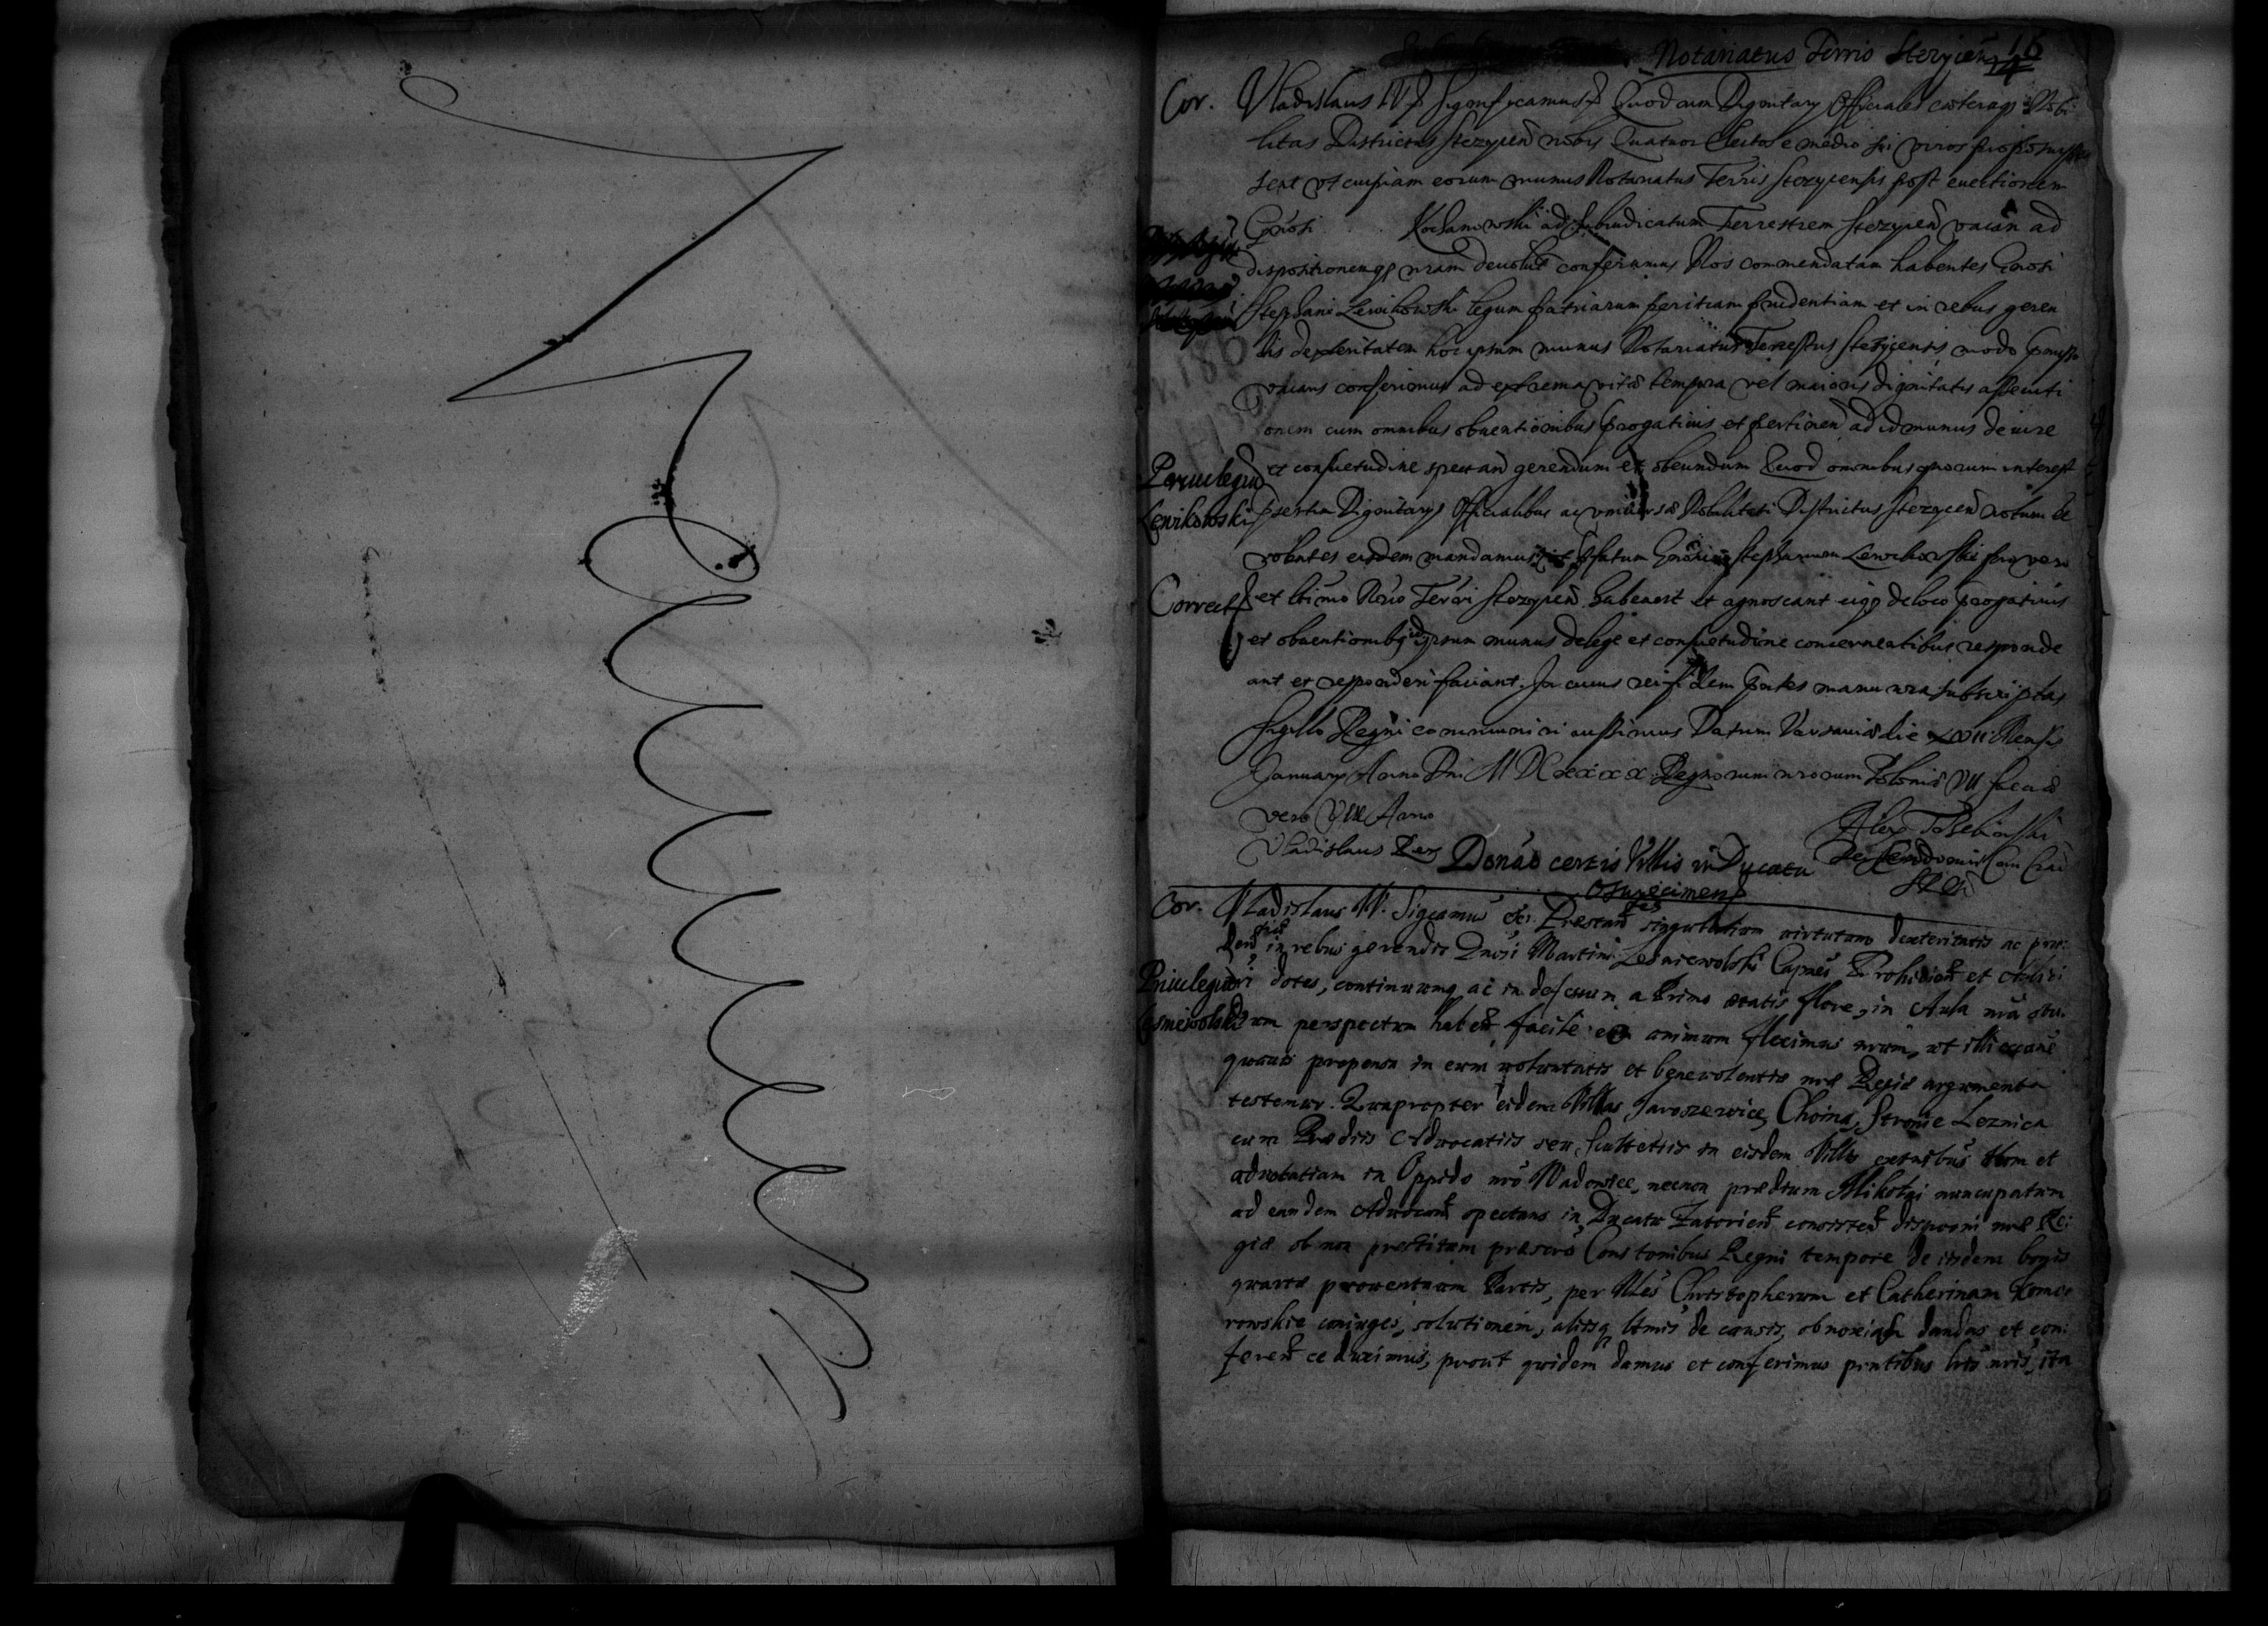 Notariatus Terris Stezycien 16
14
Cor. Vladislaus IV. Significamus Quod cum Dignitary Officiales caeteraq Nobi
litas Districtus Stezycen nobis Quatuor Electos e medio sui viros proposuisset
sent ut cuipiam eorum munus Notariatus Terris Stezycensis post euectionem
Gnosi Kochanowski ad Subiudicatum Terrestrem Stezycen vacan ad
dispositionemq nram deuolut conferamus Nos commendatam habentes Gnosi
Stephani Lewikowski legum patriarum peritiam prudentiam et in rebus geren
dis dexteritatem hoc ipsum munus Notariatus Terrestris Stezycensis modo pmisso
vacans conferimus ad extrema vitae tempora vel maioris dignitatis assecuti
onem cum omnibus obuentionibus progatiuis et pertinen ad id munus de iure
Priuilegiu et consuetudine spectan gerendum et obeundum Quod omnibus quorum interest
Lewikowski psertim Dignitarys Officialibus ac vniuersae Nobilitati Districtus Stezycen notum ee
volentes eisdem mandamus pfatum Gnosum Stephanum Lewikowski pro vero
Correct et ltimo Norio Terri Stezycen habeant et agnoscant eiq de loco progatiuis
et obuentionibq id ipsum munus de lege et consuetudine concernentibus responde
ant et responderi faciant. In cuius rei fidem pntes manu nra subscriptas
Sigillo Regni communiri iussimus Datum Varsauiae die Mensis
January Anno Dni M DC xxxx Regnorum nrorum Poloniae VII Sueciae
vero VIII Anno
Vladislaus Rex Alex Trzebinski
Donao certis Villis in Ducatu
Osuiecimen
Cor. Vladislaus IV. Sigcamus &c. Prestan singularium virtutum dexteritatis ac pru:
den in rebus gerendis Gnosi Martini Lesniewolski Capnei et Aulici
Priuilegiu nri dotes, continuumq ac indefessum a Primo aetatis flore, in Aula nra stu:
Lesniewolski dium perspectum haben, facile eo animum fleximus nrum, ut illi
propensae in eum voluntatis et beneuolentiae nrae Regiae argumenta
testemur. Quapropter eidem Villas Jaroszewice, Choina, Stronie Leznica
cum Praedijs Aduocatijs seu Scultetijs in eisdem Villis extnibus tum et
aduocatiam in Oppido nro Wadowice, necnon praedium Mikolai nuncupatum
ad eandem Aduocam spectans in Ducatu Zatorien consisten disponi nrae Re:
giae ob non praestitam praescro Constonibus Regni tempore de iisdem bonis
quartae prouentuum Partis, per Mcos Christopherum et Catherinam Komo
rowskie coniuges, solutionem, alijsq ltmis de causis, obnoxias dandas et con:
feren ee duximus, prout quidem damus et conferimus pntibus lris nris, ita